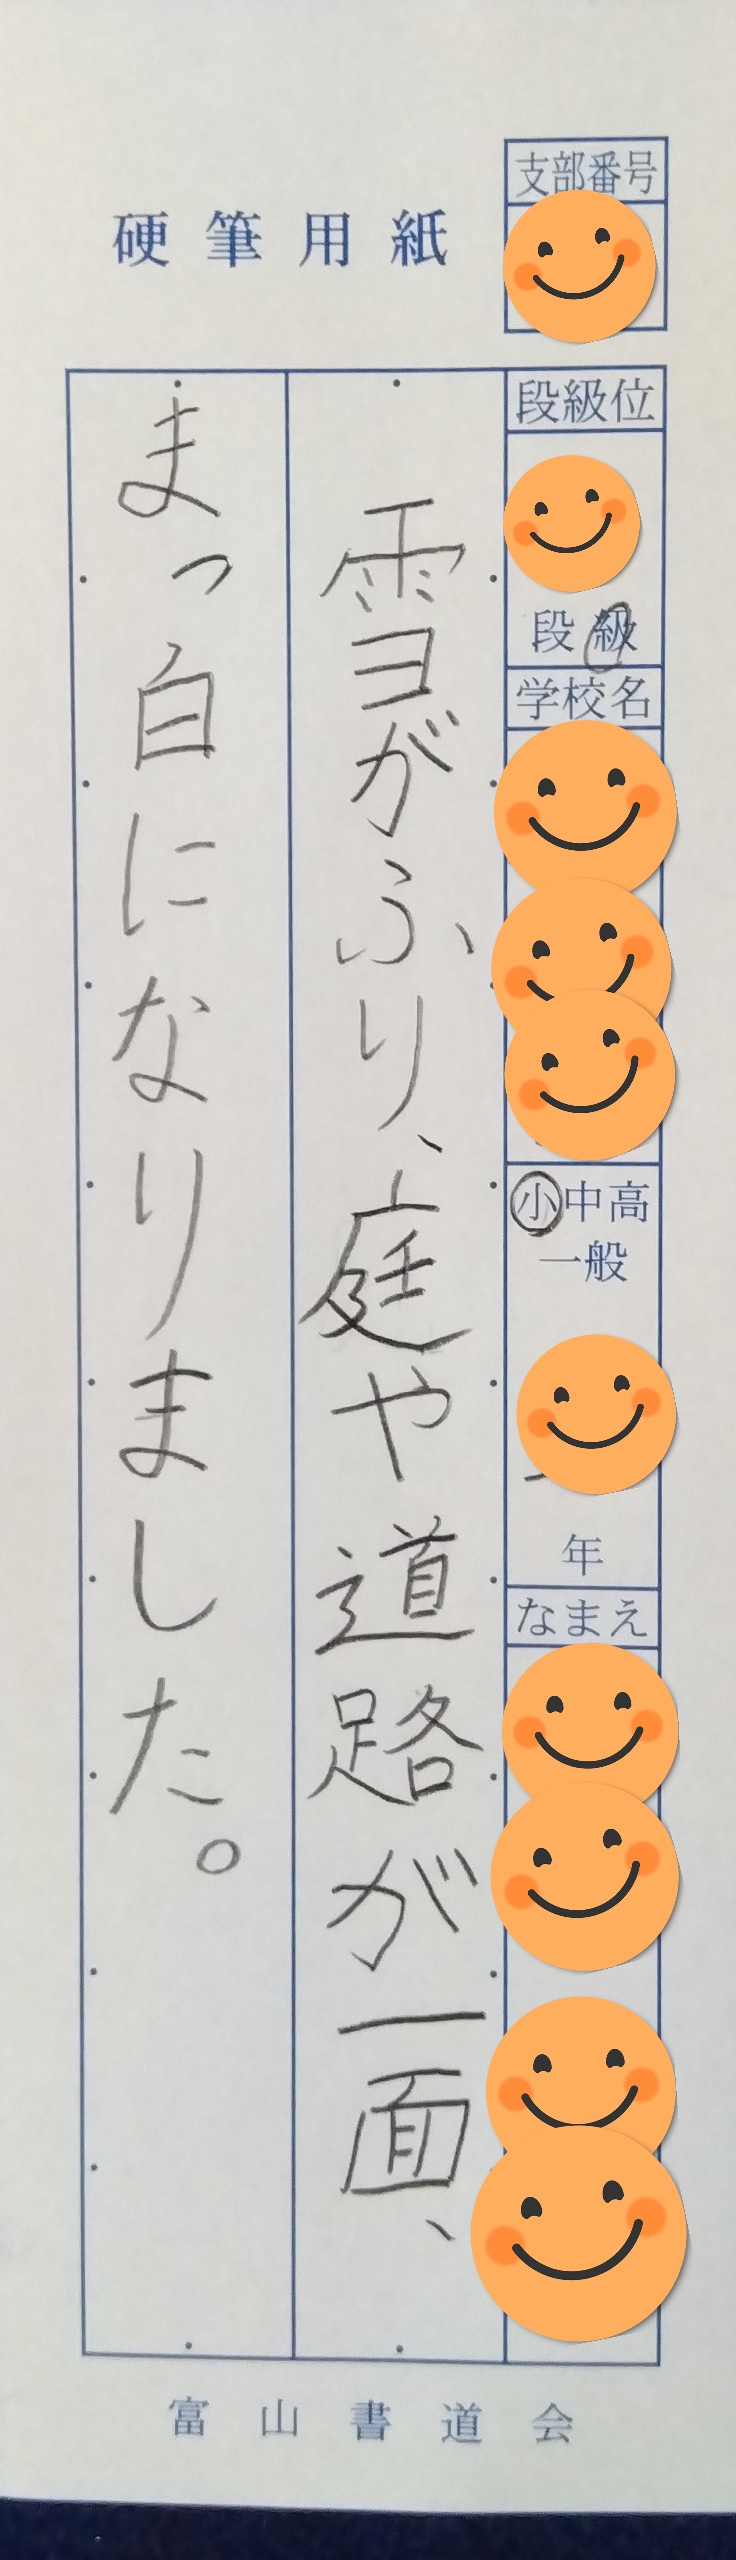 硬筆用紙
支部番号
段級位
段級
学校名
小中高
一般
年
なまえ
雪がふり、庭や道路が一面、
まっ白になりました。
富山書道会